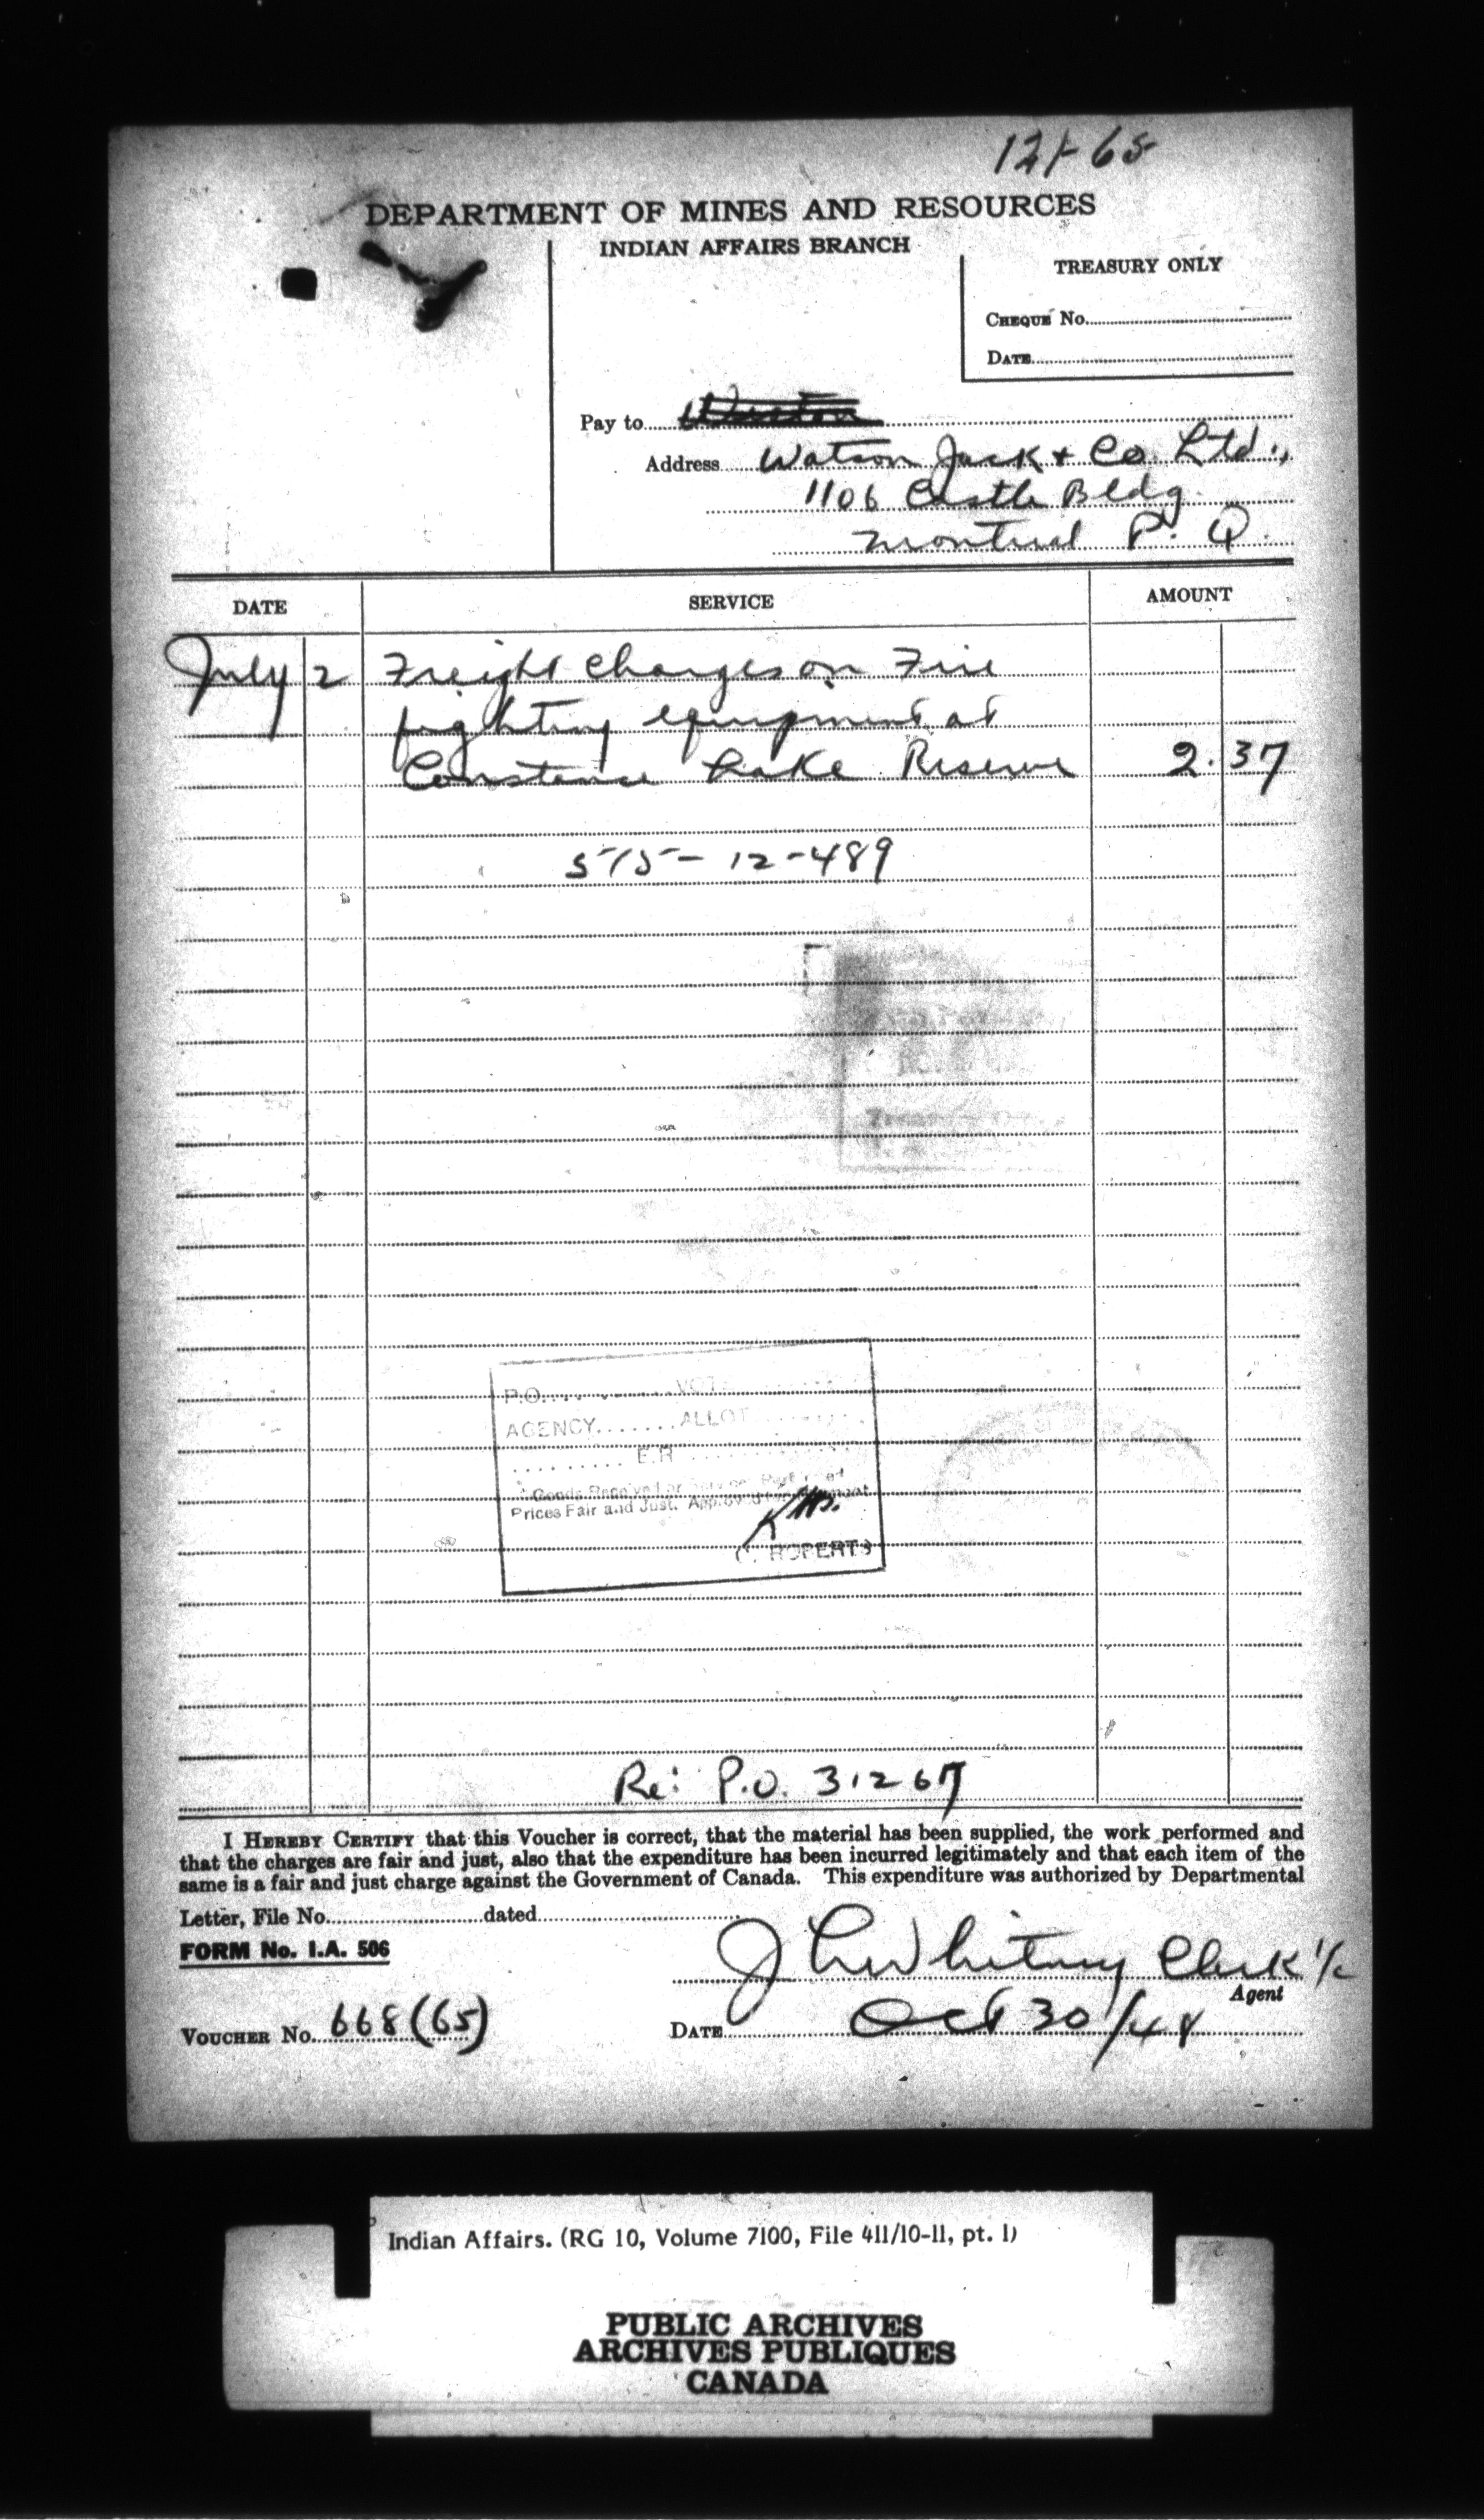 121-65
DEPARTMENT OF MINES AND RESOURCES
INDIAN AFFAIRS BRANCH
TREASURY ONLY
CHEQUE No.
DATE
Pay to
Address Watson Jack & Co. Ltd.,
1106 Castle Bldg.
Montreal P. Q.
DATE SERVICE AMOUNT
July 2 Freight charges on Fire
fighting equipment at
Constance Lake Reserve 2.37
575-12-489
P.O. VOTE
AGENCY ALLOT
E.R
Goods Received or Service Performed
Prices Fair and Just. Approved for Payment
ROBERTS
Re: P.O. 31267
I HEREBY CERTIFY that this Voucher is correct, that the material has been supplied, the work performed and
that the charges are fair and just, also that the expenditure has been incurred legitimately and that each item of the
same is a fair and just charge against the Government of Canada. This expenditure was authorized by Departmental
Letter, File No. dated
FORM No. I.A. 506
J L Whitney Clerk 1/c
Agent
VOUCHER No. 668(65)
DATE Oct 30/48
Indian Affairs. (RG 10, Volume 7100, File 411/10-11, pt. 1)
PUBLIC ARCHIVES
ARCHIVES PUBLIQUES
CANADA